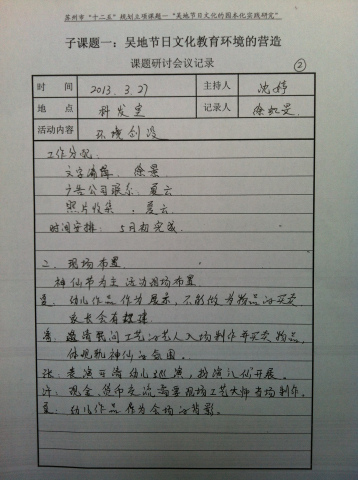 苏州市“十二五”规划立项课题—“吴地节日文化的园本化实践研究”
子课题一：吴地节日文化教育环境的营造
课题研讨会议记录
②
时 间 2013.3.27 主持人 沈婷
地 点 科发室 记录人 徐
活动内容 环境创设
工作分配：
文字编辑：徐景
广告公司联系：夏云
照片收集：夏云
时间安排：5月初完成.
二、现场布置
神仙节为主 活动现场布置
夏：幼儿作品作为展示，不能做为物品的买卖
家长会有
邀请民间工艺的艺人入场制作并买卖物品，
体现轧神仙的氛围。
张：表演可请幼儿巡演，扮演八仙开展。
许：现金、货币交流需要现场工艺大师当场制作。
夏：幼儿作品作为全场的背影。